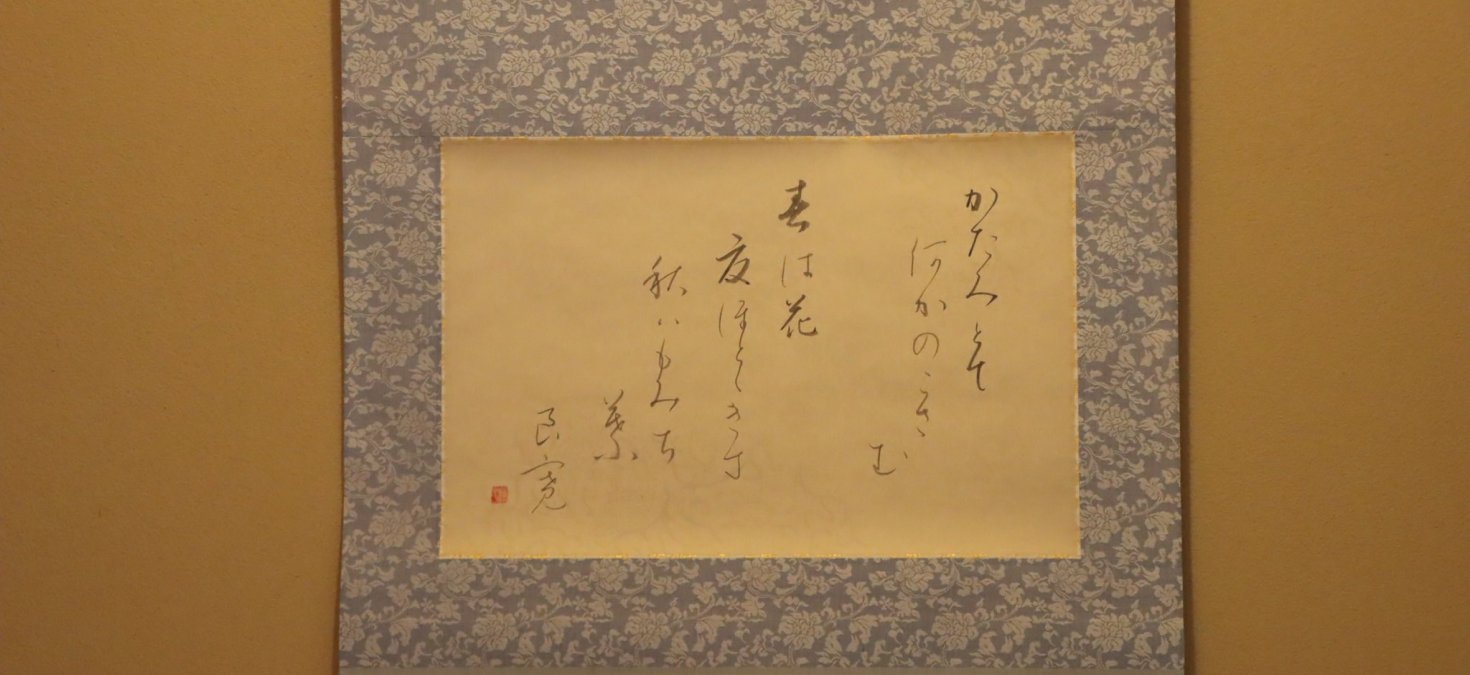 かたみとて
何かのこさ
む
春は花
夏ほとゝきす
秋ハもみち
葉
良寛